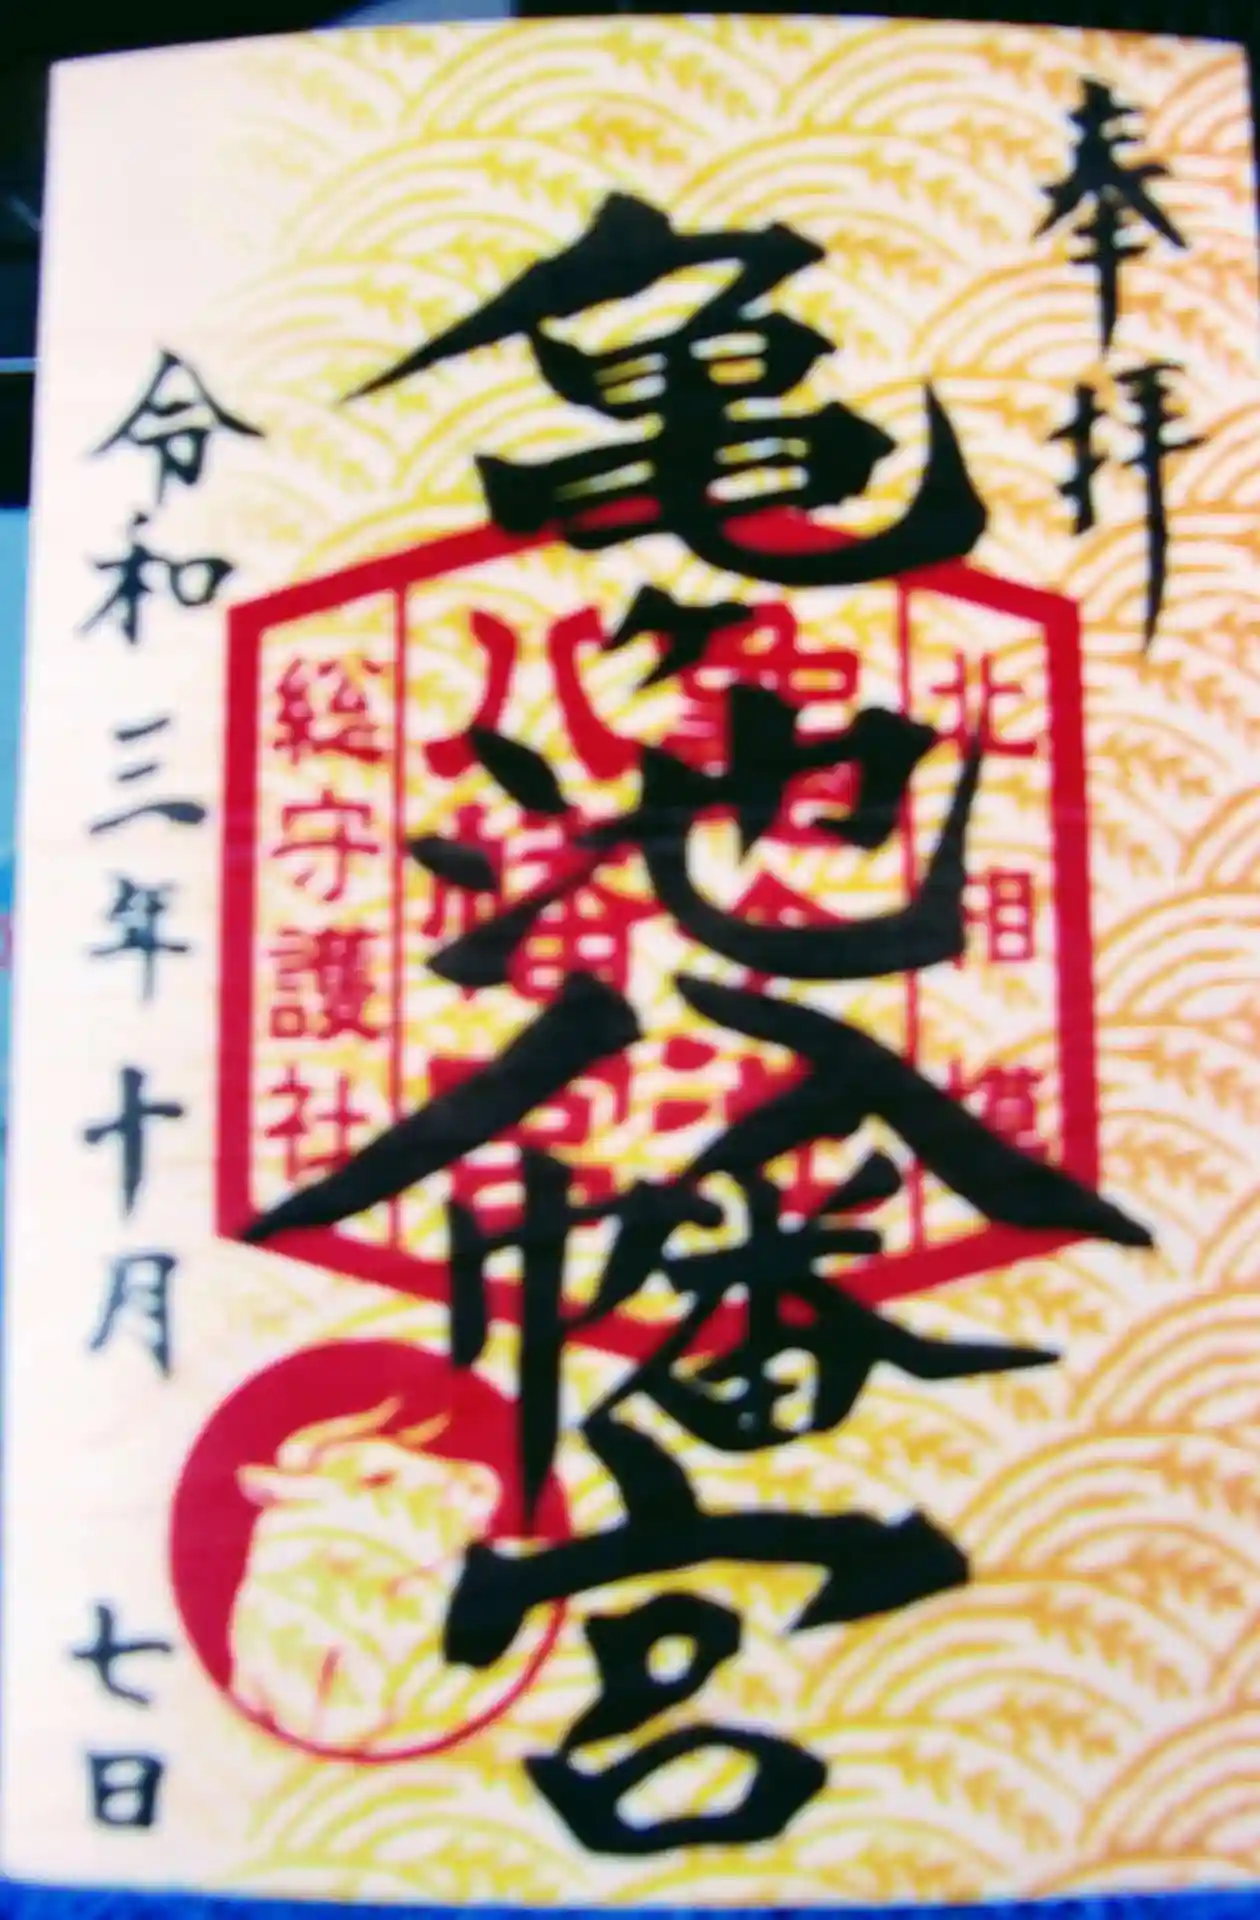 奉拝
亀ヶ池八幡宮
北相模
亀ヶ池
八幡宮
総守護社
令和三年十月七日